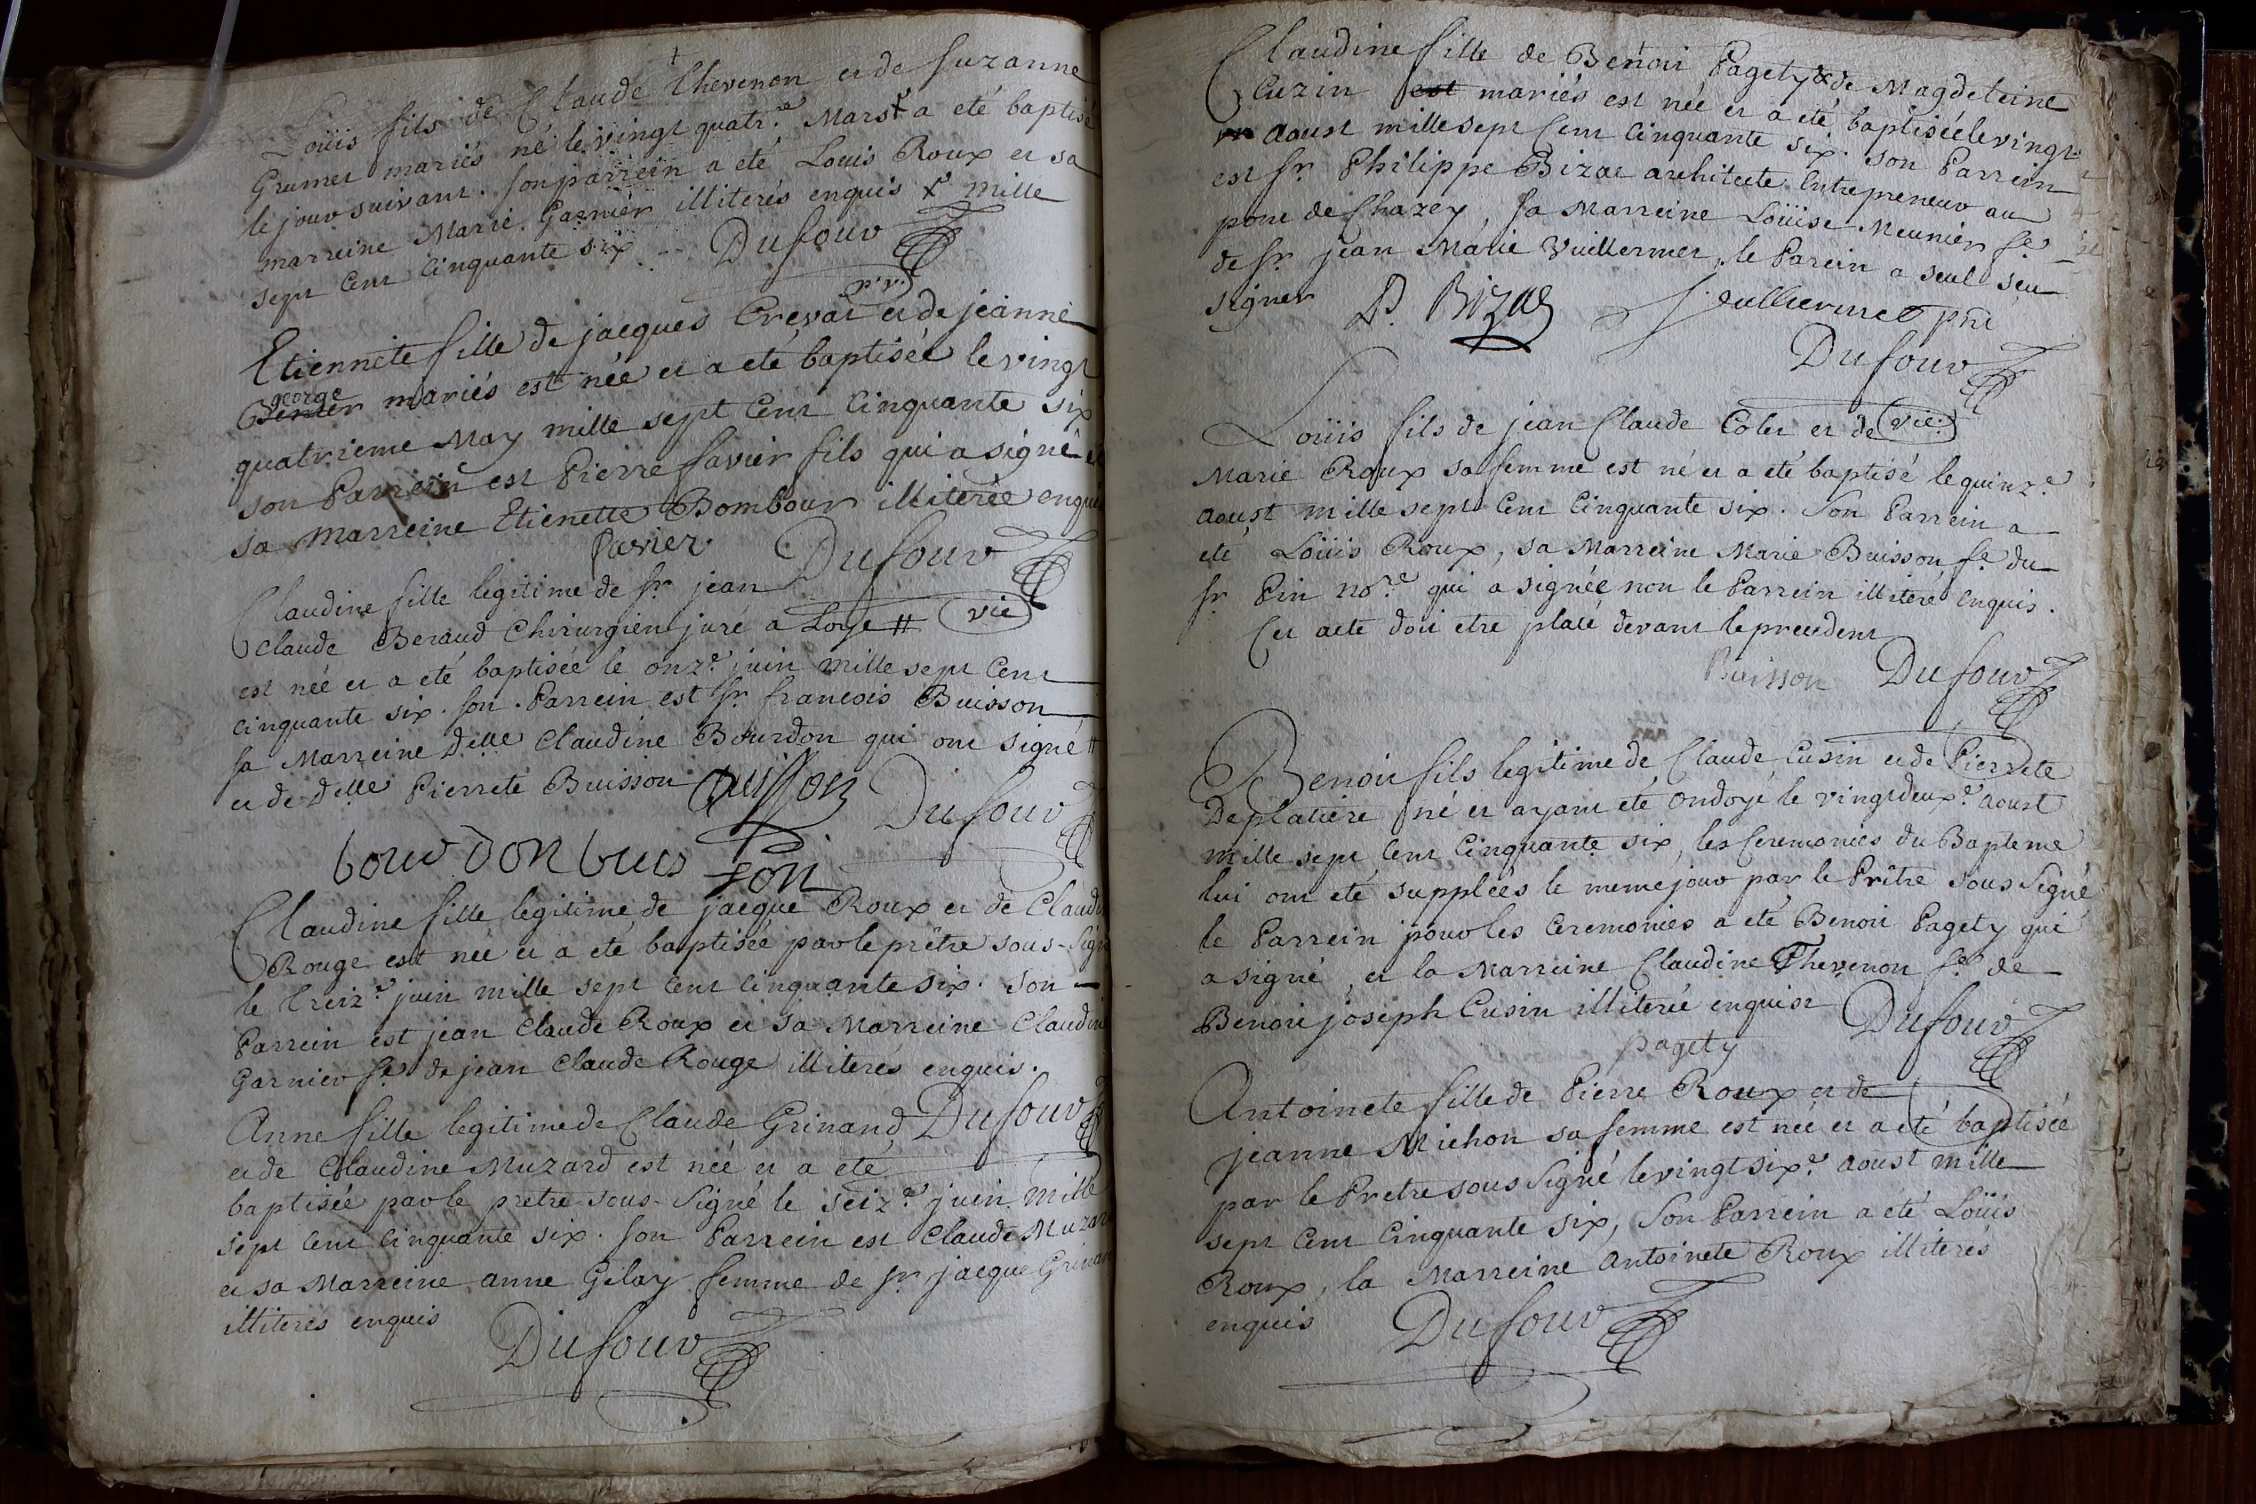 Loüis fils de Claude Thevenon et de Suzanne
Grumet mariés né le vingt quatr.e Mars x a eté baptisé
le jour suivant. Son parrein a eté Louis Roux et sa
marreine Marie Garnier illiterés enquis x mille
sept Cent Cinquante six Dufour
Etiennete fille de jacques Crevat et de jeanne
george
mariés est née et a eté baptisée le vingt
quatrieme May mille sept Cent Cinquante six
son Parrein est Pierre favier fils qui a signé et
sa Marreine Etienette Bombour illiterée enquis
favier Dufour
Claudine fille legitime de Sr. jean
Claude Beraud Chirurgien juré a Loye # vie
est née et a eté baptisée le onz.e juin mille sept Cent
Cinquante six. Son Parrein est Sr. francois Buisson
Sa Marreine Delle Claudine Bourdon qui ont signé #
et de Delle Pierrete Buisson Buisson Dufour
bourdon buisson
Claudine fille legitime de jacque Roux et de Claudi
Rouge est née et a eté baptisée par le prêtre sous-Sign
le treiz.e juin mille sept Cent Cinquante six. Son
Parrein est jean Claude Roux et sa Marreine Claudin
Garnier fe. de jean Claude Rouge illiterés enquis.
Dufour
Anne fille legitime de Claude Grinand
et de Claudine Muzard est née et a eté
baptisée par le pretre sous-Signé le seiz.e juin mille
sept Cent Cinquante six. Son Parrein est Claude Muzard
et sa Marreine anne Gelay femme de Sr. jacque Grinan
illiterés enquis Dufour
Claudine fille de Benoit Pagety & de Magdeleine
Cuzin est mariés est née et a eté baptisée le vingt
aoust mille sept Cent Cinquante six. Son Parrein
est Sr. Philippe Bizot architecte Entrepreneur au
pont de Chazey, Sa Marreine Loüise Meunier fe.
de Sr. jean Marie Vuillermet, le Parein a seul seu
signer P. Bizot
Dufour
Loüis fils de jean Claude Colet et de vie
Marie Roux sa femme est né et a eté baptisé le quinz.e
Aoust mille sept Cent Cinquante six. Son Parrein a
eté Loüis Roux, sa Marreine Marie Buisson fe. du
Sr. Pin no.re qui a signée non le Parrein illiteré enquis.
Cet acte doit etre placé devant le precedent
Buisson Dufour
Benoit fils legitime de Claude Cusin et de Pierrete
Deplatiere né et ayant eté ondoyé le vingtdeux.e aoust
mille sept Cent Cinquante six, les Ceremonies du Bapteme
lui ont eté supplées le meme jour par le Prêtre sous Signé
le Parrein pour les Ceremonies a eté Benoit Pagety qui
a signé, et la Marreine Claudine Thevenon fe. de
Benoit joseph Cusin illiterée enquise Dufour
pagety
Antoinete fille de Pierre Roux et de
jeanne Michon sa femme est née et a eté baptisée
par le Pretre sous Signé le vingt six.e aoust mille
sept Cent Cinquante six, Son Parrein a eté Loüis
Roux, la Marreine Antoinete Roux illiterés
enquis Dufour